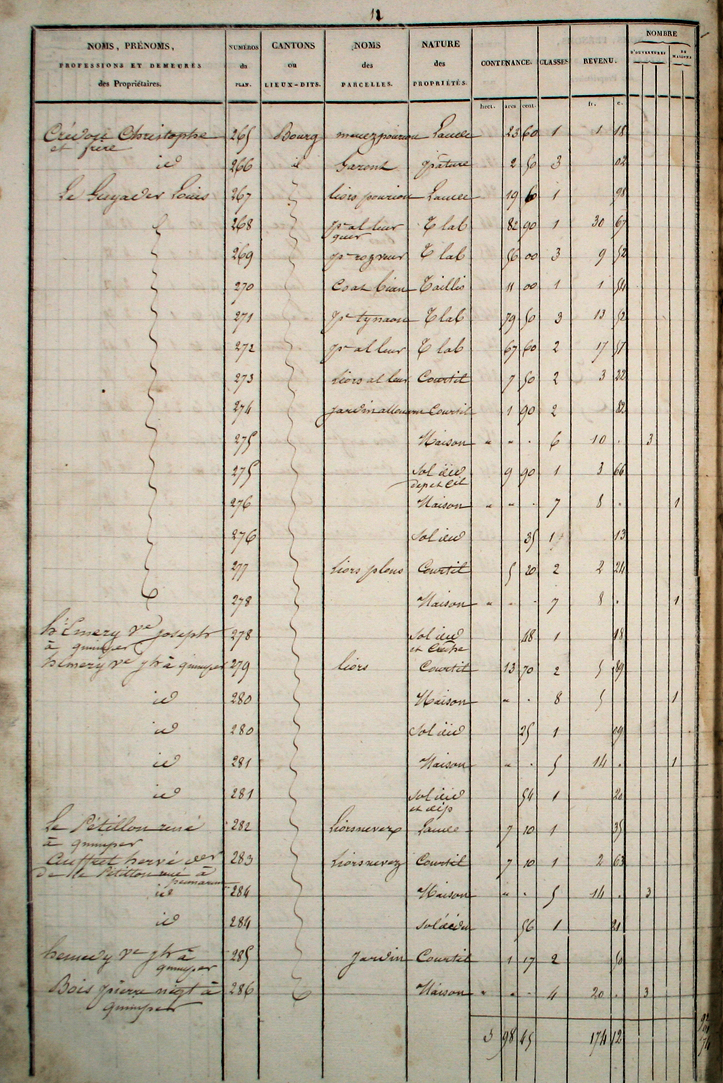 12
NOMS, PRÉNOMS, PROFESSIONS ET DEMEURES des Propriétaires. NUMÉROS du PLAN. CANTONS ou LIEUX-DITS. NOMS des PARCELLES. NATURE des PROPRIÉTÉS. CONTENANCE. CLASSES REVENU. NOMBRE D'OUVERTURES DE MAISONS
hect. ares cent. fr. c.
Christophe 265 Bourg Lande 23 60 1 1 18
et frère
id 266 id pâture 2 50 3 02
Le Guyader Louis 267 liors Lande 19 60 1 98
268 pc al leur T lab 82 90 1 30 67
quer
269 T lab 56 00 3 9 52
270 Coat bian Taillis 11 00 1 1 54
271 T lab 79 50 3 13 52
272 pc al leur T lab 67 60 2 17 57
273 liors al leur Courtil 7 50 2 3 22
274 Courtil 1 90 2 82
275 Maison " " . 6 10 . 3
275 Sol id 9 90 1 3 66
276 Maison " " . 7 8 . 1
276 Sol id 35 1 13
277 liors Courtil 5 20 2 2 24
278 Maison " . . 7 8 . 1
hémery ve joseph 278 Sol id 48 1 18
à quimper
hémery ve jh à quimper 279 liors Courtil 13 70 2 5 89
id 280 Maison " . 8 5 1
id 280 Sol id 25 1 09
id 281 Maison " . 5 14 . 1
id 281 Sol id 54 1 20
Le Pétillon rené 282 liorsnevez Lande 7 10 1 35
à quimper
hervé 283 liorsnevez Courtil 7 10 1 2 63
de le Pétillon rené à
id 284 Maison " . 5 14 . 3
id 284 Sol 56 1 21
ve jh à 285 jardin Courtil 1 17 2 50
quimper
Bois pierre négt à 286 Maison " " . 4 20 . 3
quimper
5 98 45 174 12